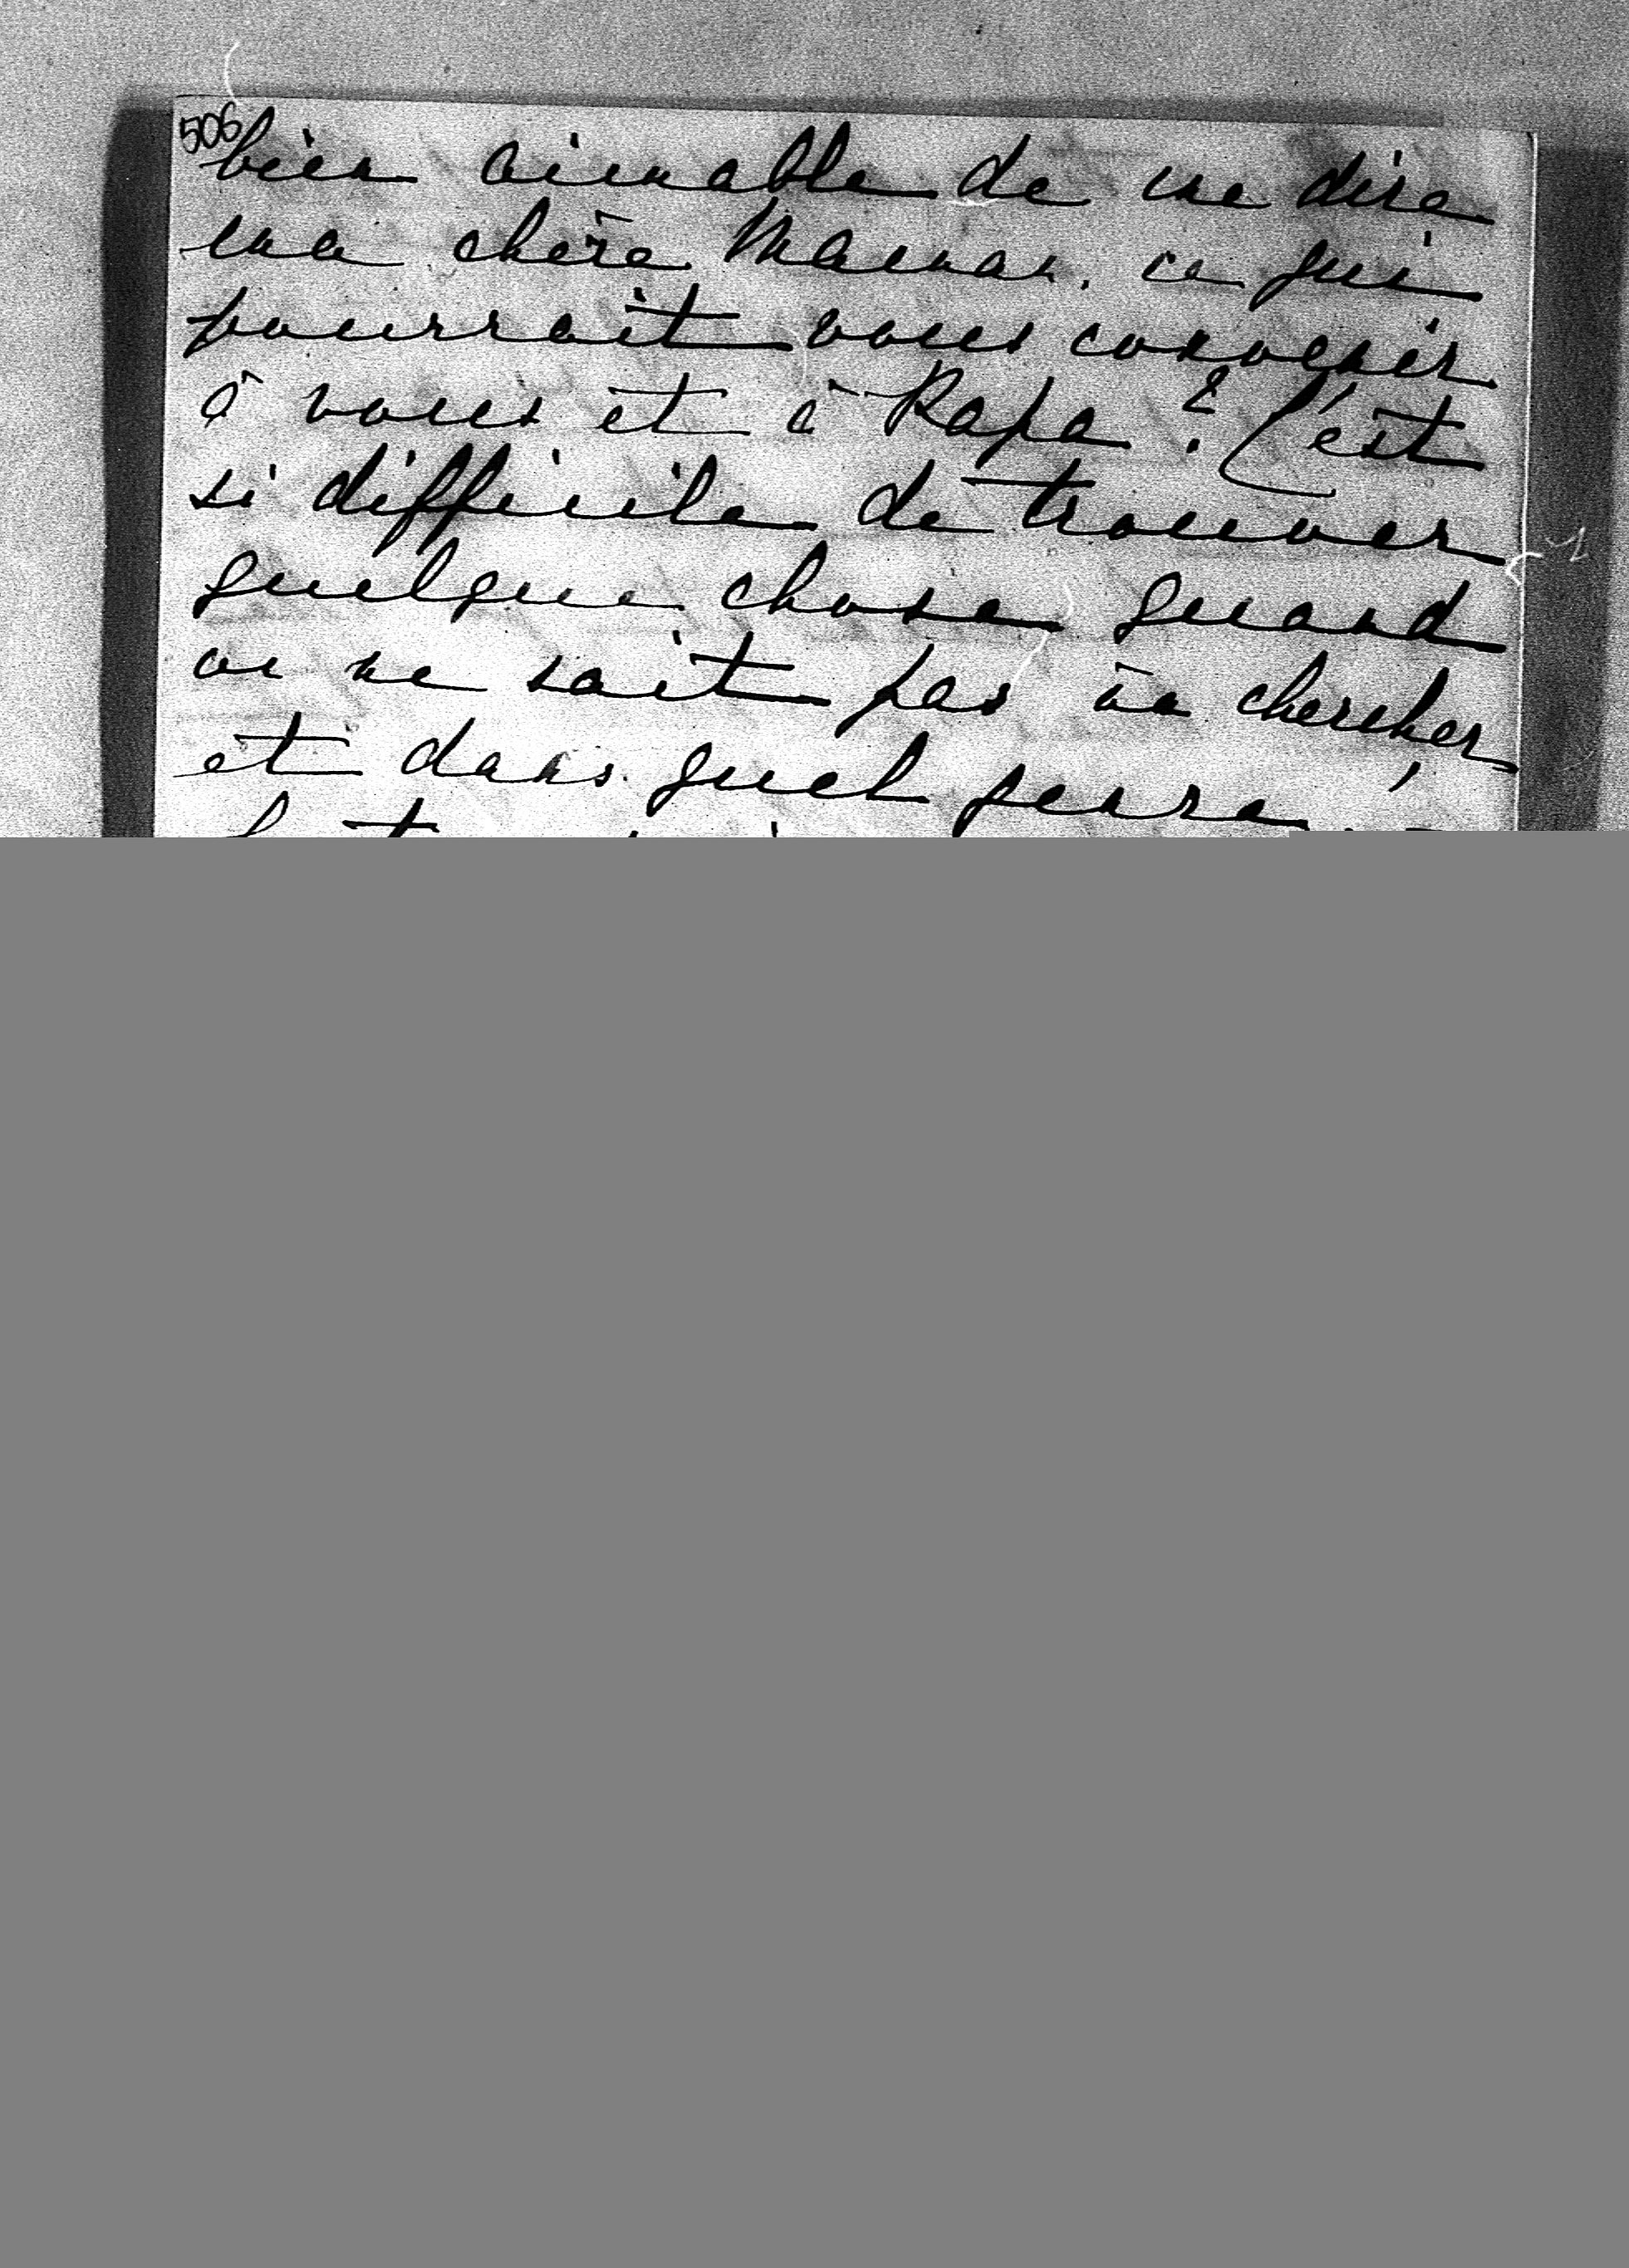 506
bien aimable de me dire
ma chère Maman, ce qui
pourrait vous convenir
à vous et à Papa ? C'est
si difficile de trouver
quelque chose quand
on ne sait pas où chercher
et dans quel genre,